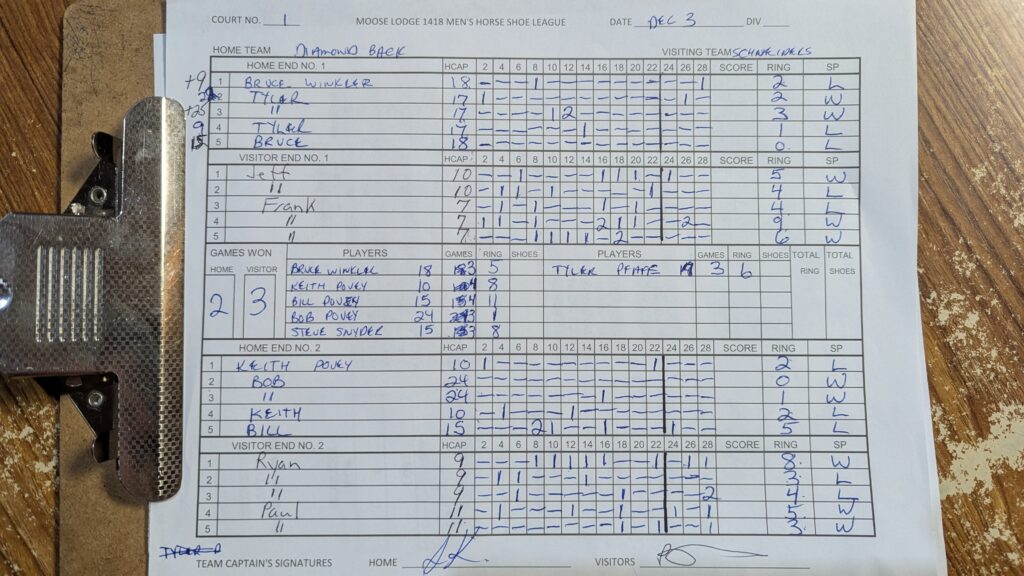 COURT NO. 1 MOOSE LODGE 1418 MEN'S HORSE SHOE LEAGUE DATE DEC 3 DIV
HOME TEAM DIAMOND BACK VISITING TEAM SCHNEIDERS
HOME END NO. 1 HCAP 2 4 6 8 10 12 14 16 18 20 22 24 26 28 SCORE RING SP
+9 1 BRUCE WINKLER 18 - - - 1 - - - - - - - - - 1 2 L
TYLER 17 1 - - - - - - - - - - - 1 - 2 W
+25 3 " 17 - - - - 1 2 - - - - - - - - 3 W
9 4 TYLER 17 - - - - - - 1 - - - - - - - 1 L
15 5 BRUCE 18 - - - - - - - - - - - - - - 0 L
VISITOR END NO. 1 HCAP 2 4 6 8 10 12 14 16 18 20 22 24 26 28 SCORE RING SP
1 Jeff 10 - - 1 - - - - 1 1 1 - 1 - - 5 W
2 " 10 - 1 1 - 1 - - - - - 1 - - - 4 L
3 Frank 7 - 1 - 1 - - - 1 - 1 - - - - 4 L
4 " 7 1 1 - 1 - - - 2 1 1 - - 2 - 9 W
5 " 7 - - - 1 1 1 1 - 2 - - - - - 6 W
GAMES WON PLAYERS GAMES RING SHOES PLAYERS GAMES RING SHOES TOTAL RING TOTAL SHOES
HOME VISITOR
2 3
BRUCE WINKLER 18 3 5 TYLER PFAFF 3 6
KEITH POVEY 10 4 8
BILL POVEY 15 4 11
BOB POVEY 24 3 1
STEVE SNYDER 15 3 8
HOME END NO. 2 HCAP 2 4 6 8 10 12 14 16 18 20 22 24 26 28 SCORE RING SP
1 KEITH POVEY 10 1 - - - - - - - - - 1 - - - 2 L
2 BOB 24 - - - - - - - - - - - - - - 0 W
3 " 24 - - - - - - - 1 - - - - - - 1 W
4 KEITH 10 - 1 - - - 1 - - - - - - - - 2 L
5 BILL 15 - - - 2 1 - - 1 - - - 1 - - 5 L
VISITOR END NO. 2 HCAP 2 4 6 8 10 12 14 16 18 20 22 24 26 28 SCORE RING SP
1 Ryan 9 - - - 1 1 1 1 1 - - 1 - 1 1 8 W
2 " 9 - 1 1 - - - 1 - - - - - - - 3 L
3 " 9 - - 1 - - - - - 1 - - - - 2 4 L
4 Paul 11 - 1 - - - 1 - - 1 - - 1 - 1 5 W
5 " 11 - - - - - - - - 1 - 1 - - 1 3 W
TEAM CAPTAIN'S SIGNATURES HOME VISITORS